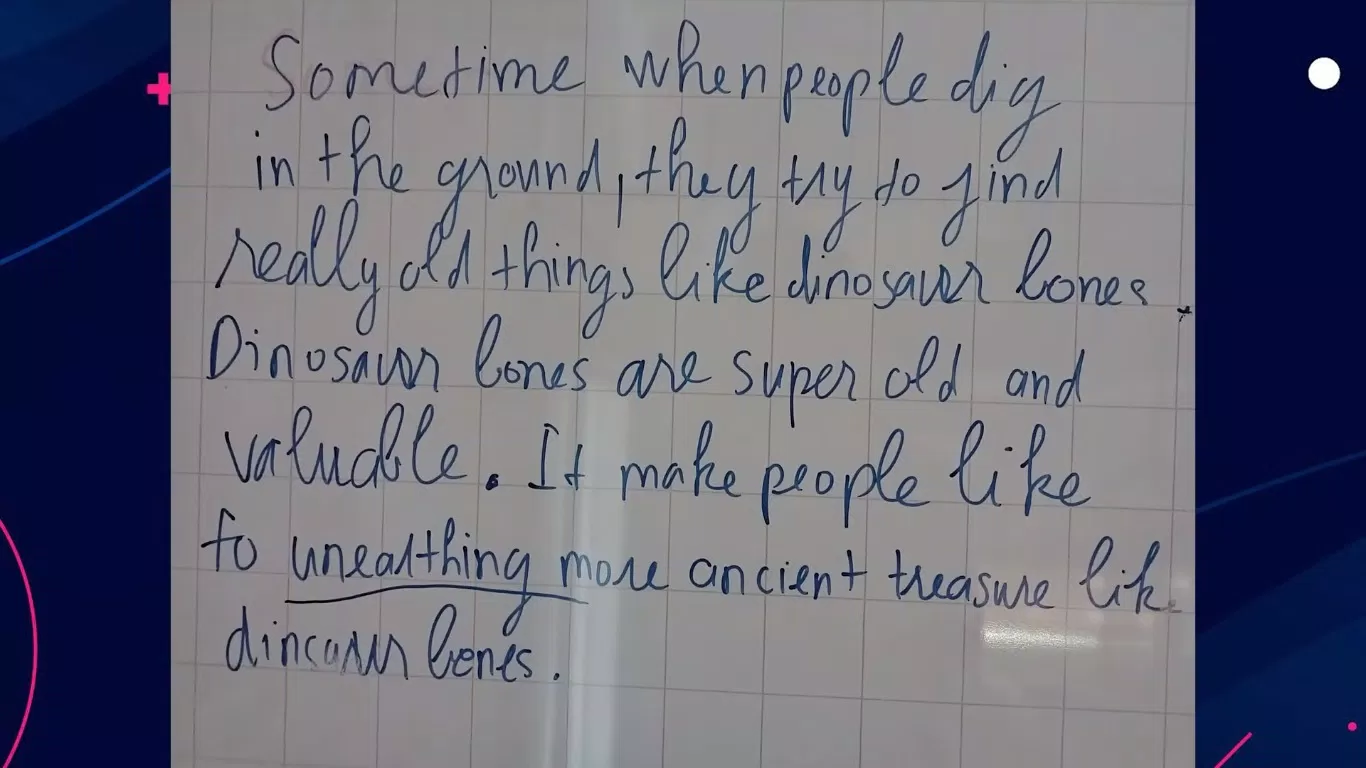 Sometime when people dig
in the ground, they try to find
really old things like dinosaur bones.
Dinosaur bones are super old and
valuable. It make people like
to unearthing more ancient treasure like
dinosaur bones.